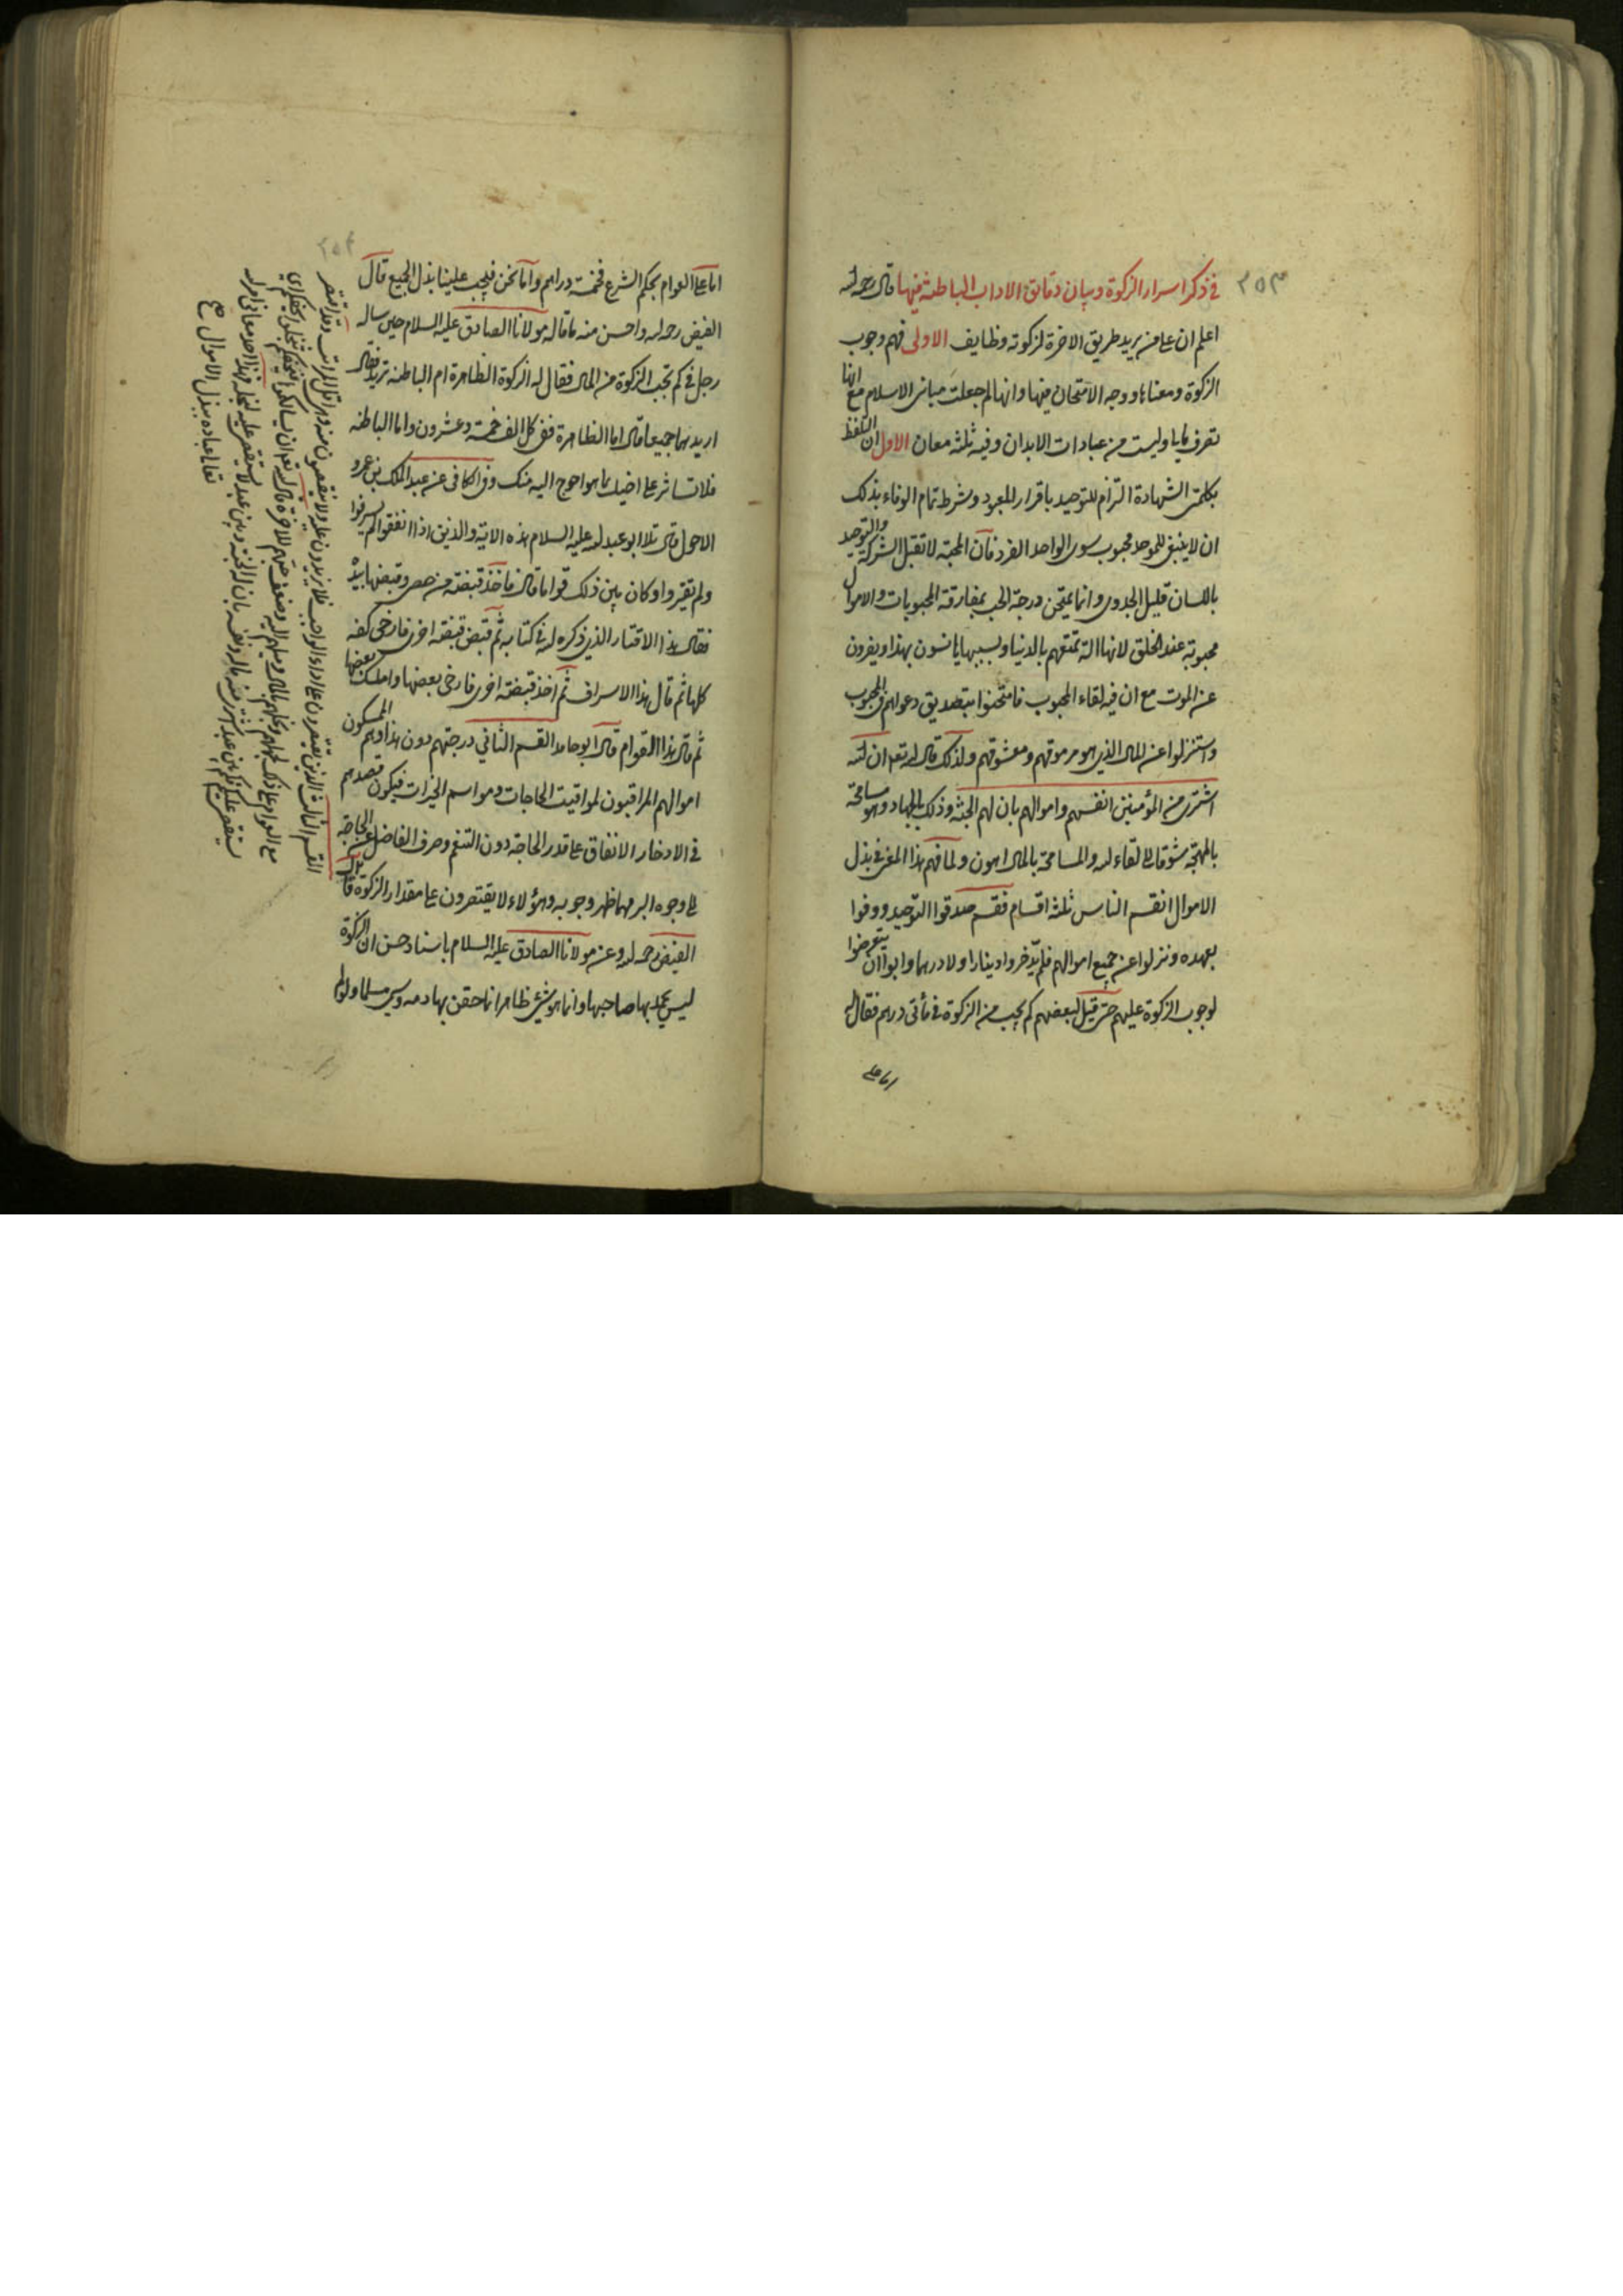 ٢٥٣
في ذكر اسرار الزكوة وبيان دقايق الاداب الباطنة فيها قال رحمه الله
اعلم ان على من يريد طريق الاخرة لزكوته وظايف الاولى فهم وجوب
الزكوة ومعناها ووجه الامتحان فيها وانها لم جعلت مباني الاسلام مع انها
تصرف مالي وليست من عبادات الابدان وفيه ثلثة معان الاول ان التلفظ
بكلمتي الشهادة التزام للتوحيد باقرار المعبود وشرط تمام الوفاء بذلك
ان لا يبقى للموحد محبوب سوى الواحد الفرد فان المحبة لا تقبل الشركة والتوحيد
باللسان قليل الجدوى وانما يمتحن درجة الحب بمفارقة المحبوبات والاموال
محبوبة عند الخلق لانها الة تمتعهم بالدنيا وبسببها يانسون بهذا ويفرون
عن الموت مع ان فيه لقاء المحبوب فامتحنوا بتصديق دعواهم في المحبوب
واستنزلوا عن المال الذي هو مرموقهم ومعشوقهم ولذلك قال الله تعه ان الله
اشترى من المؤمنين انفسهم واموالهم بان لهم الجنة وذلك بالجهاد وهو مسامحة
بالمهجة شوقا الى لقاء الله والمسامحة بالمال اهون ولما فهم هذا المعنى في بذل
الاموال انقسم الناس ثلثة اقسام فقسم صدقوا التوحيد ووفوا
بعهده ونزلوا عن جميع اموالهم فلم يدخروا دينارا ولا درهما وابوا ان يتعرضوا
لوجوب الزكوة عليهم حتى قيل لبعضهم كم يجب من الزكوة في مأتي درهم فقال
اما على
٢٥٤
اما على العوام بحكم الشرع فخمسة دراهم واما نحن فيجب علينا بذل الجميع قال
الفيض رحمه الله واحسن منه ما قاله مولانا الصادق عليه السلام حين ساله
رجل في كم تجب الزكوة من المال فقال له الزكوة الظاهرة ام الباطنة تريد فقال
اريدهما جميعا قال اما الظاهرة ففي كل الف خمسة وعشرون واما الباطنة
فلا تستاثر على اخيك بما هو احوج اليه منك وفي الكافي عن عبد الملك بن عمرو
الاحول قال تلا ابو عبد الله عليه السلام هذه الاية والذين اذا انفقوا لم يسرفوا
ولم يقتروا وكان بين ذلك قواما قال فاخذ قبضة من حصى وقبضها بيده
فقال هذا الاقتار الذي ذكره الله في كتابه ثم قبض قبضة اخرى فارخى كفه
كلها ثم قال هذا الاسراف ثم اخذ قبضة اخرى فارخى بعضها وامسك بعضها
ثم قال هذا القوام قال ابو حامد القسم الثاني درجتهم دون هذا وهم الممسكون
اموالهم المراقبون لمواقيت الحاجات ومواسم الخيرات فيكون قصدهم
في الادخار الانفاق على قدر الحاجة دون التنعم وصرف الفاضل عن الحاجة
الى وجوه البر مهما ظهر وجوبه وهؤلاء لا يقتصرون على مقدار الزكوة قال
الفيض رحمه الله وعن مولانا الصادق عليه السلام باسناد حسن ان الزكوة
ليس يحمد بها صاحبها وانما هو شيء ظاهر انما حقن بها دمه وسمي مسلما ولو لم
القسم الثالث الذين يقتصرون على اداء الواجب فلا يزيدون عليه ولا ينقصون منه وهي اقل المراتب وقد اقتصر